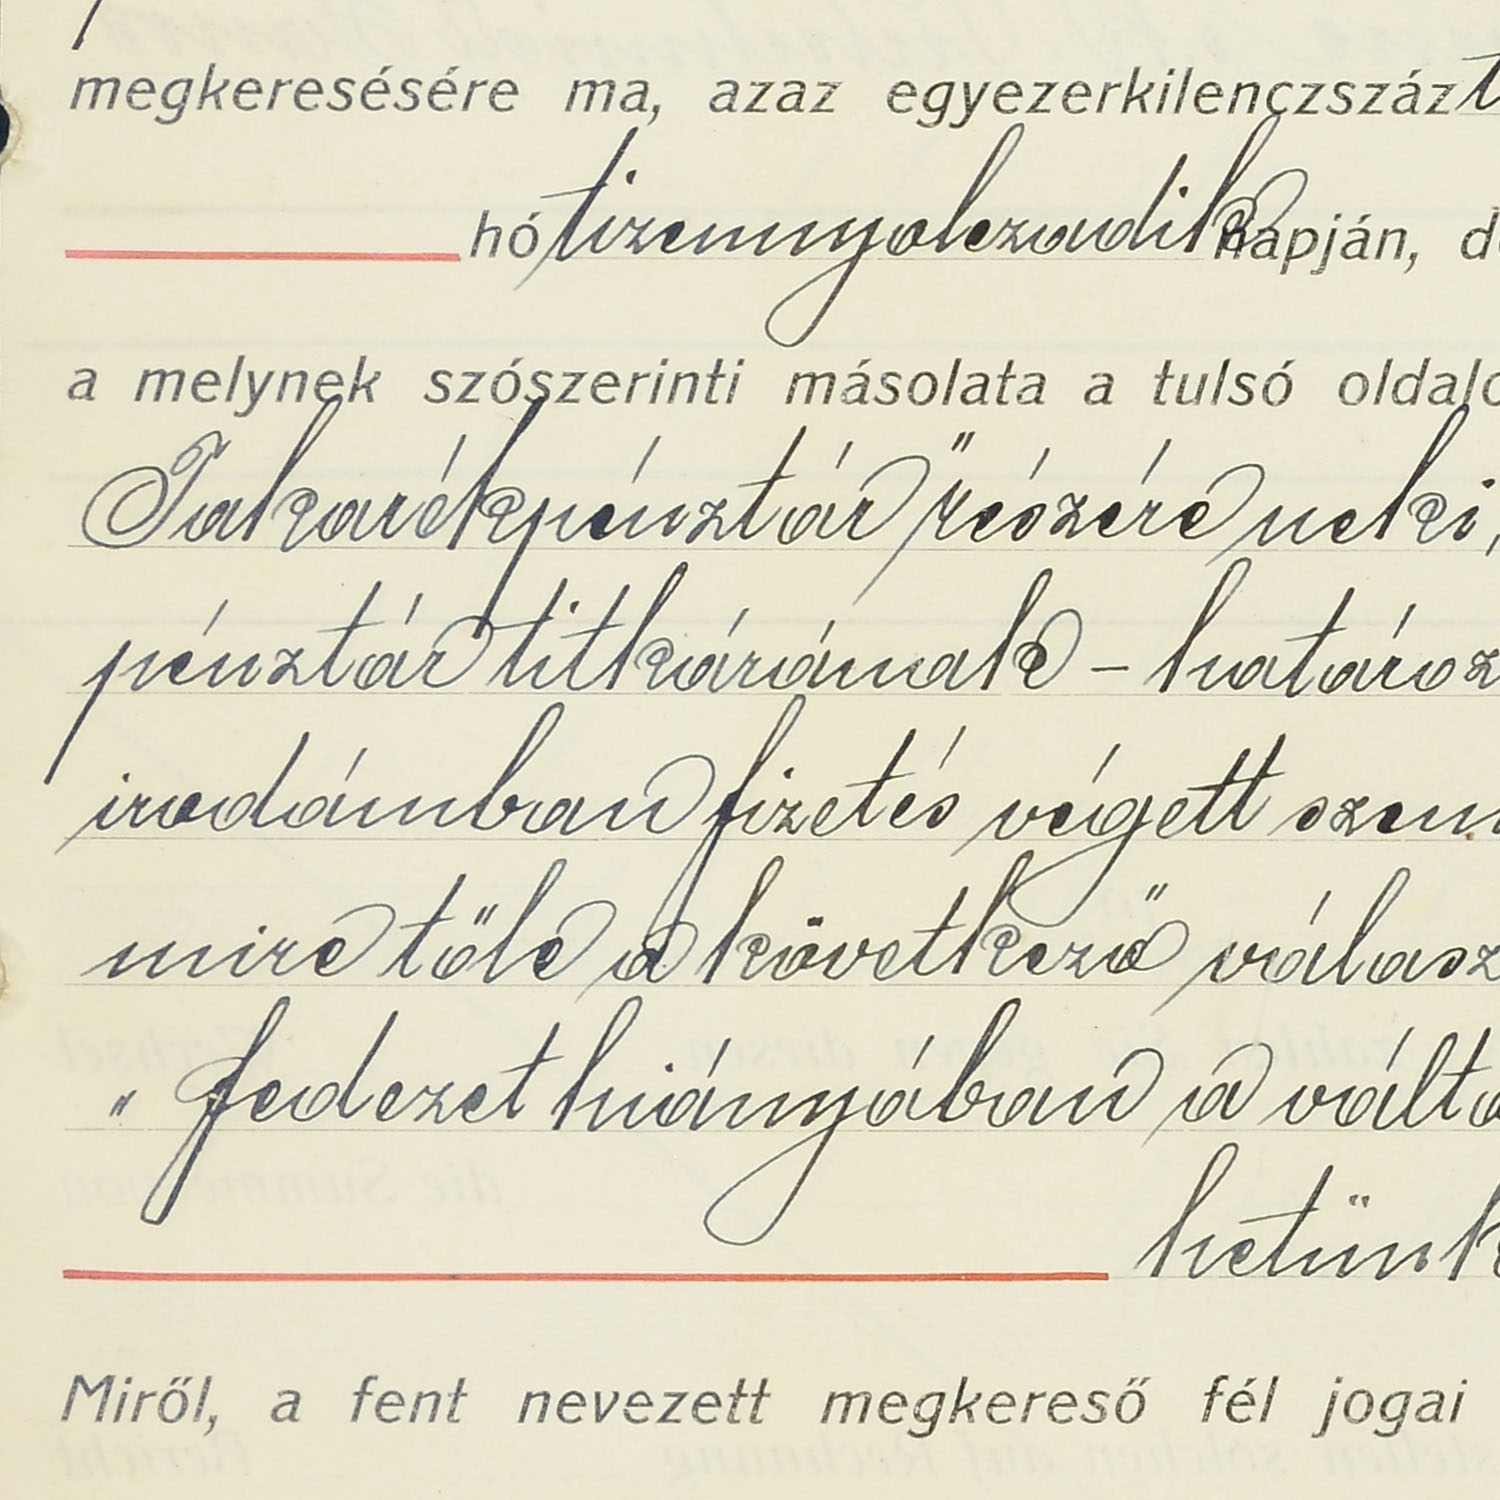 megkeresésére ma, azaz egyezerkilenczszázt
hó tizennyolczadik napján, d
a melynek szószerinti másolata a tulsó oldalo
Takarékpénztár" részére neki,
pénztár titkárának – határoz
irodámban fizetés végett szem
mire tőle a következő válasz
„ fedezet hiányában a válto
hetünk
Miről, a fent nevezett megkereső fél jogai